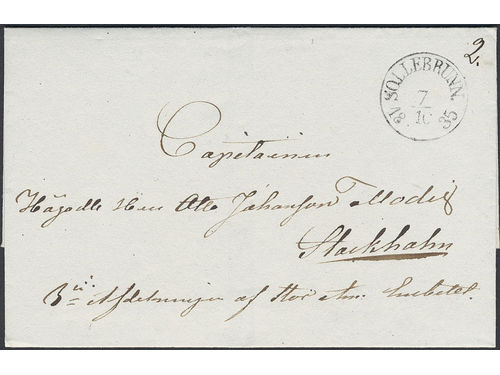 2.
SOLLEBRUNN.
7
10
18 35
Capitainen
Herr Otto Johanson Modig
Stockholm
3:die Afdelningen af Stor Am: Embetet.